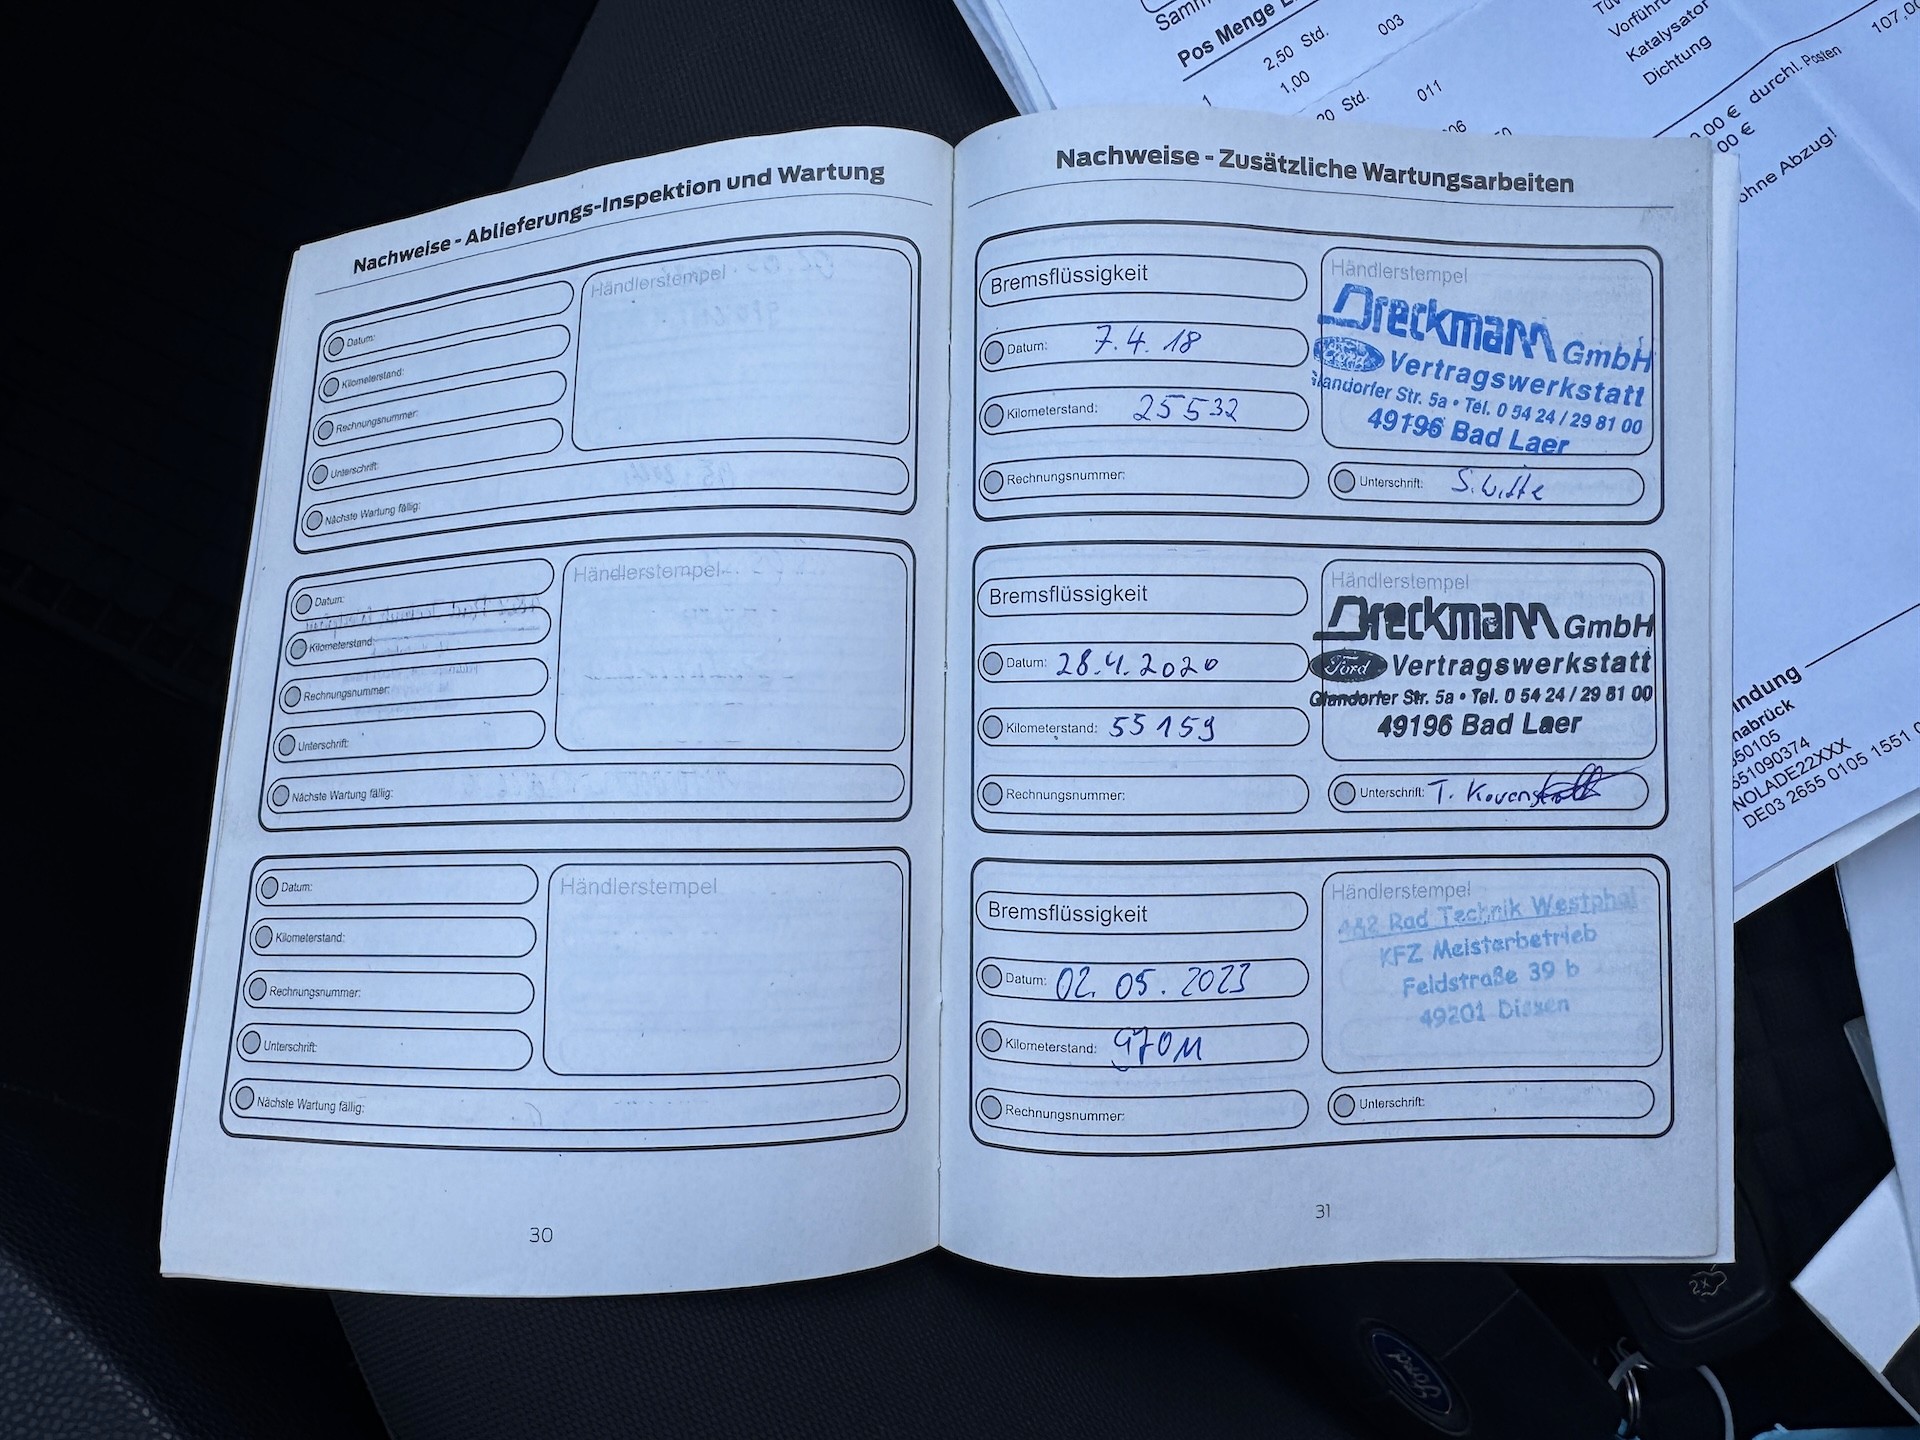 Samm
Pos Menge E
2,50 Std. 003
1 1,00
20 Std. 011
Vorführu
Katalysator
Dichtung
107,00
0,00 € durchl. Posten
,00 €
ohne Abzug!
Nachweise - Ablieferungs-Inspektion und Wartung
Datum:
Kilometerstand:
Rechnungsnummer:
Unterschrift:
Nächste Wartung fällig:
Händlerstempel
Datum:
Kilometerstand:
Rechnungsnummer:
Unterschrift:
Nächste Wartung fällig:
Händlerstempel
Datum:
Kilometerstand:
Rechnungsnummer:
Unterschrift:
Nächste Wartung fällig:
Händlerstempel
30
Nachweise - Zusätzliche Wartungsarbeiten
Bremsflüssigkeit
Datum: 7.4.18
Kilometerstand: 25532
Rechnungsnummer:
Händlerstempel
Dreckmann GmbH
Ford Vertragswerkstatt
Glandorfer Str. 5a • Tel. 0 54 24 / 29 81 00
49196 Bad Laer
Unterschrift: S. Witte
Bremsflüssigkeit
Datum: 28.4.2020
Kilometerstand: 55159
Rechnungsnummer:
Händlerstempel
Dreckmann GmbH
Ford Vertragswerkstatt
Glandorfer Str. 5a • Tel. 0 54 24 / 29 81 00
49196 Bad Laer
Unterschrift: T.
Bremsflüssigkeit
Datum: 02.05.2023
Kilometerstand: 97011
Rechnungsnummer:
Händlerstempel
4&2 Rad Technik Westphal
KFZ Meisterbetrieb
Feldstraße 39 b
49201 Dissen
Unterschrift:
31
indung
nabrück
50105
551090374
NOLADE22XXX
DE03 2655 0105 1551 0
Ford
2x